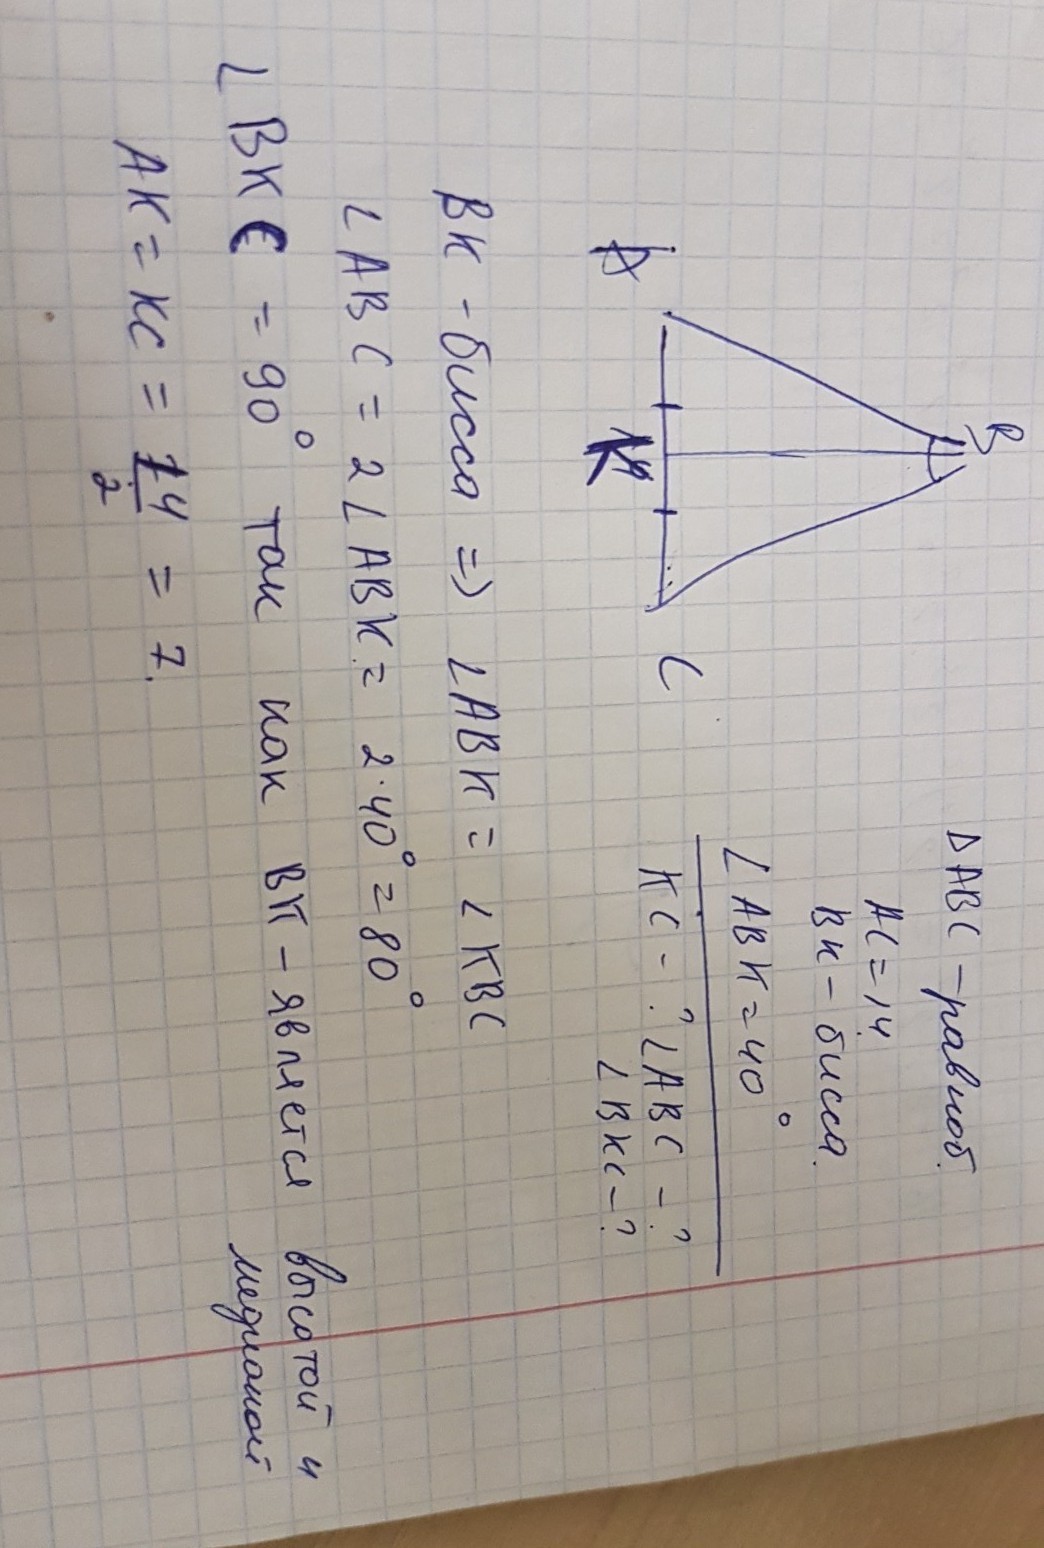 B
A
K
C
ΔABC - равноб.
AC = 14
BK - бисса.
∠ABK = 40°
KC - ? ∠ABC - ?
∠BKC - ?
BK - бисса => ∠ABK = ∠KBC
∠ABC = 2∠ABK = 2·40° = 80°
∠BKC = 90° так как BK - является высотой и
медианой
AK = KC = 14/2 = 7.